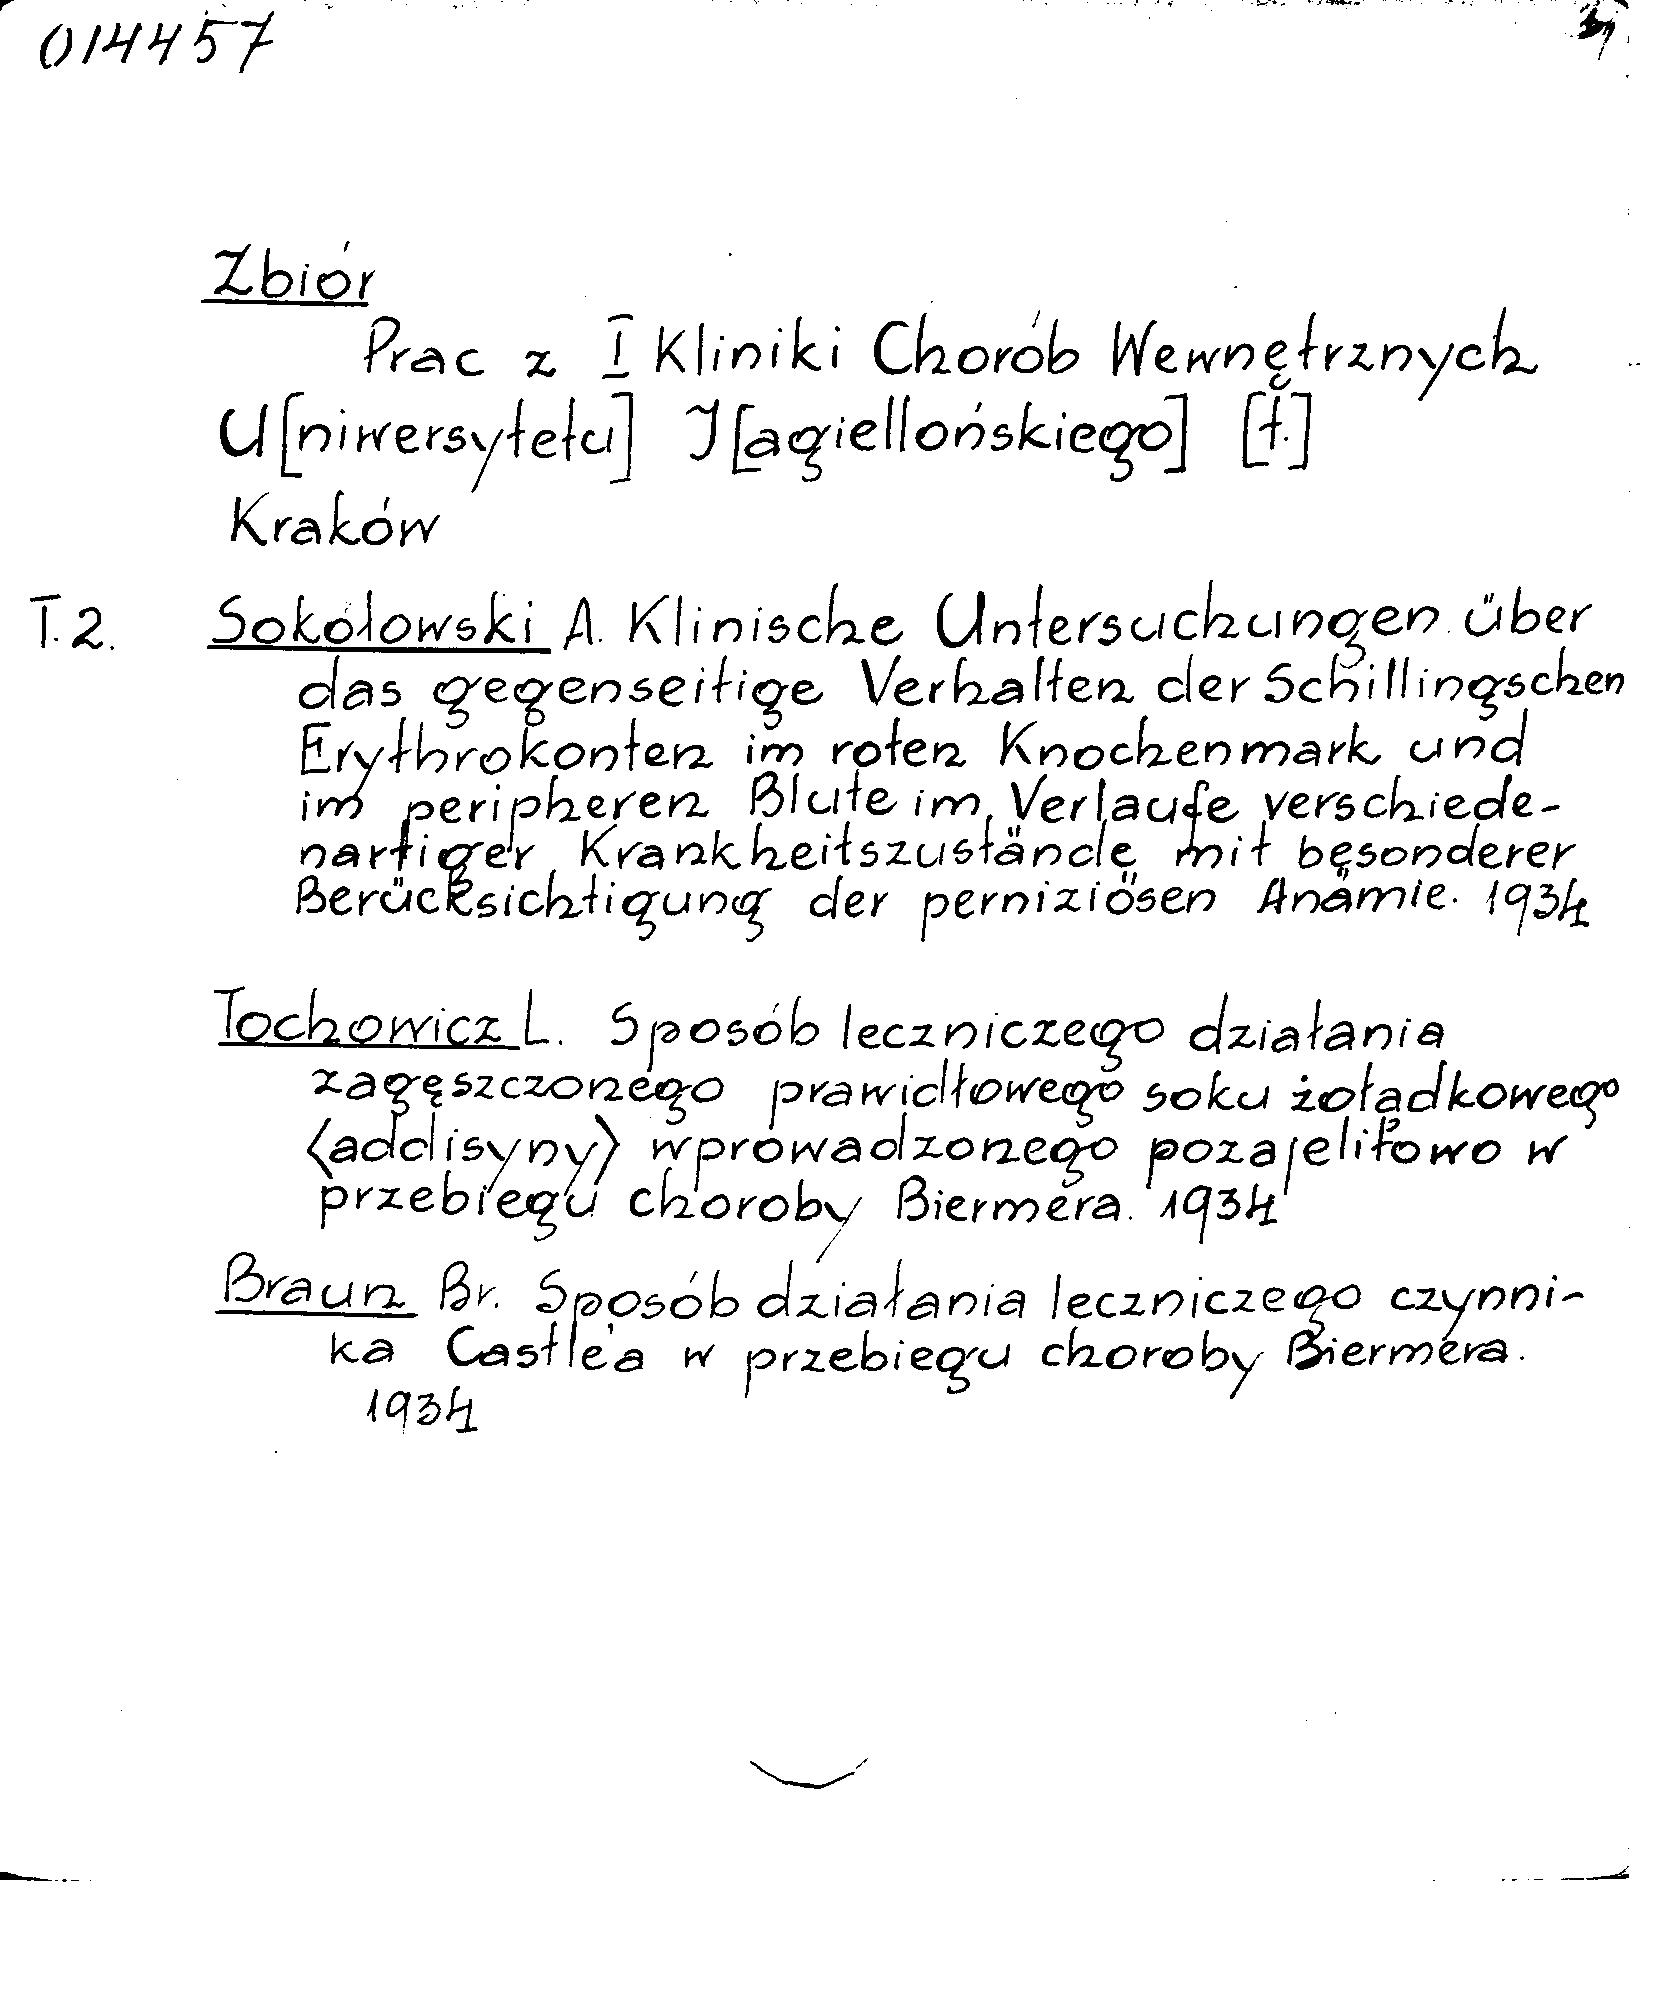 014457
Zbiór
Prac z I Kliniki Chorób Wewnętrznych
U[niwersytetu] J[agiellońskiego] [t.]
Kraków
T.2. Sokołowski A. Klinische Untersuchungen über
das gegenseitige Verhalten der Schillingschen
Erythrokonten im roten Knochenmark und
im peripheren Blute im Verlaufe verschiede-
nartiger Krankheitszustände mit besonderer
Berücksichtigung der perniziösen Anämie. 1934
Tochowicz L. Sposób leczniczego działania
zagęszczonego prawidłowego soku żołądkowego
<addisyny> wprowadzonego pozajelitowo w
przebiegu choroby Biermera. 1934
Braun Br. Sposób działania leczniczego czynni-
ka Castle'a w przebiegu choroby Biermera.
1934